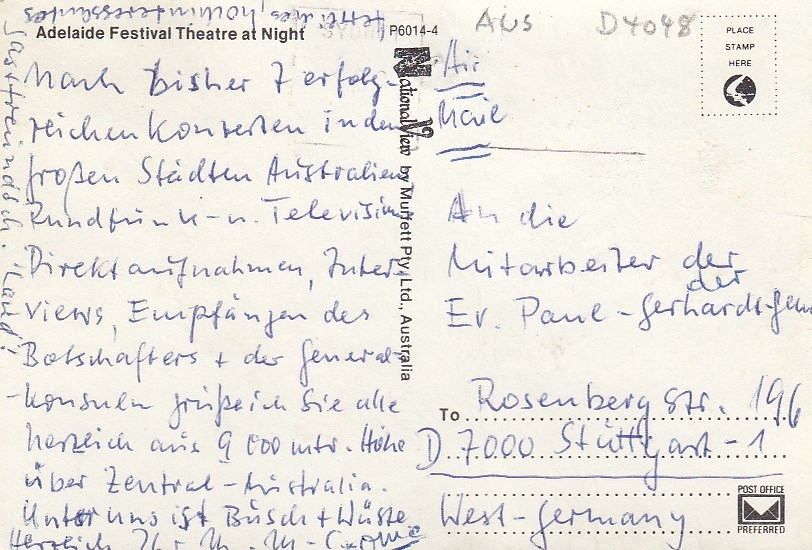 AUS D4048
Adelaide Festival Theatre at Night
P6014-4
PLACE
STAMP
HERE
Nach bisher 7 erfolg-
reichen Konzerten in den
großen Städten Australiens,
Rundfunk- u. Television
Direktaufnahmen, Inter-
views, Empfängen des
Botschafters + der General-
-konsuln grüße ich Sie alle
herzlich aus 9 000 mtr. Höhe
über Zentral-Australia.
Unter uns ist Busch + Wüste
Herzlich Ihr
gastfreundsch. Land!
National View by Murfett Pty. Ltd., Australia
Air
Mail
An die
Mitarbeiter der
der
Ev. Paul-Gerhardt-Gem
To Rosenberg Str. 196
D 7000 Stuttgart-1
West-Germany
POST OFFICE
PREFERRED